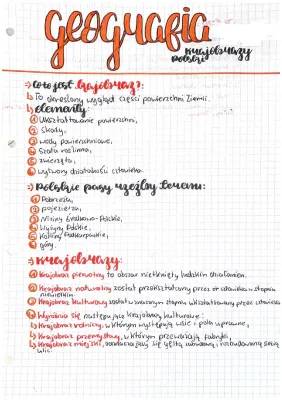 Geografia
krajobrazy
polskie
Co to jest krajobraz?:
To określony wygląd części powierzchni Ziemii.
elementy:
① Ukształtowanie powierzchni,
② Skały,
③ wody powierzchniowe,
④ Szata roślinna,
⑤ zwierzęta,
⑥ wytwory działalności człowieka.
Polskie pasy rzeźby terenu:
① Pobrzeża,
② pojezierza,
③ Niziny Środkowo-Polskie,
④ Wyżyny Polskie,
⑤ Kotliny Podkarpackie,
⑥ góry.
Krajobrazy:
Krajobraz pierwotny to obszar nietknięty ludzkim działaniem.
Krajobraz naturalny został przekształcony przez człowieka w stopniu
niewielkim
Krajobraz kulturowy został w znacznym stopniu ukształtowany przez człowieka
Wyróżnia się następujące krajobrazy kulturowe:
Krajobraz rolniczy, w którym występują wsie i pola uprawne,
Krajobraz przemysłowy, w którym przeważają fabryki,
Krajobraz miejski, gęstą zabudową i rozbudowaną siecią
ulic.